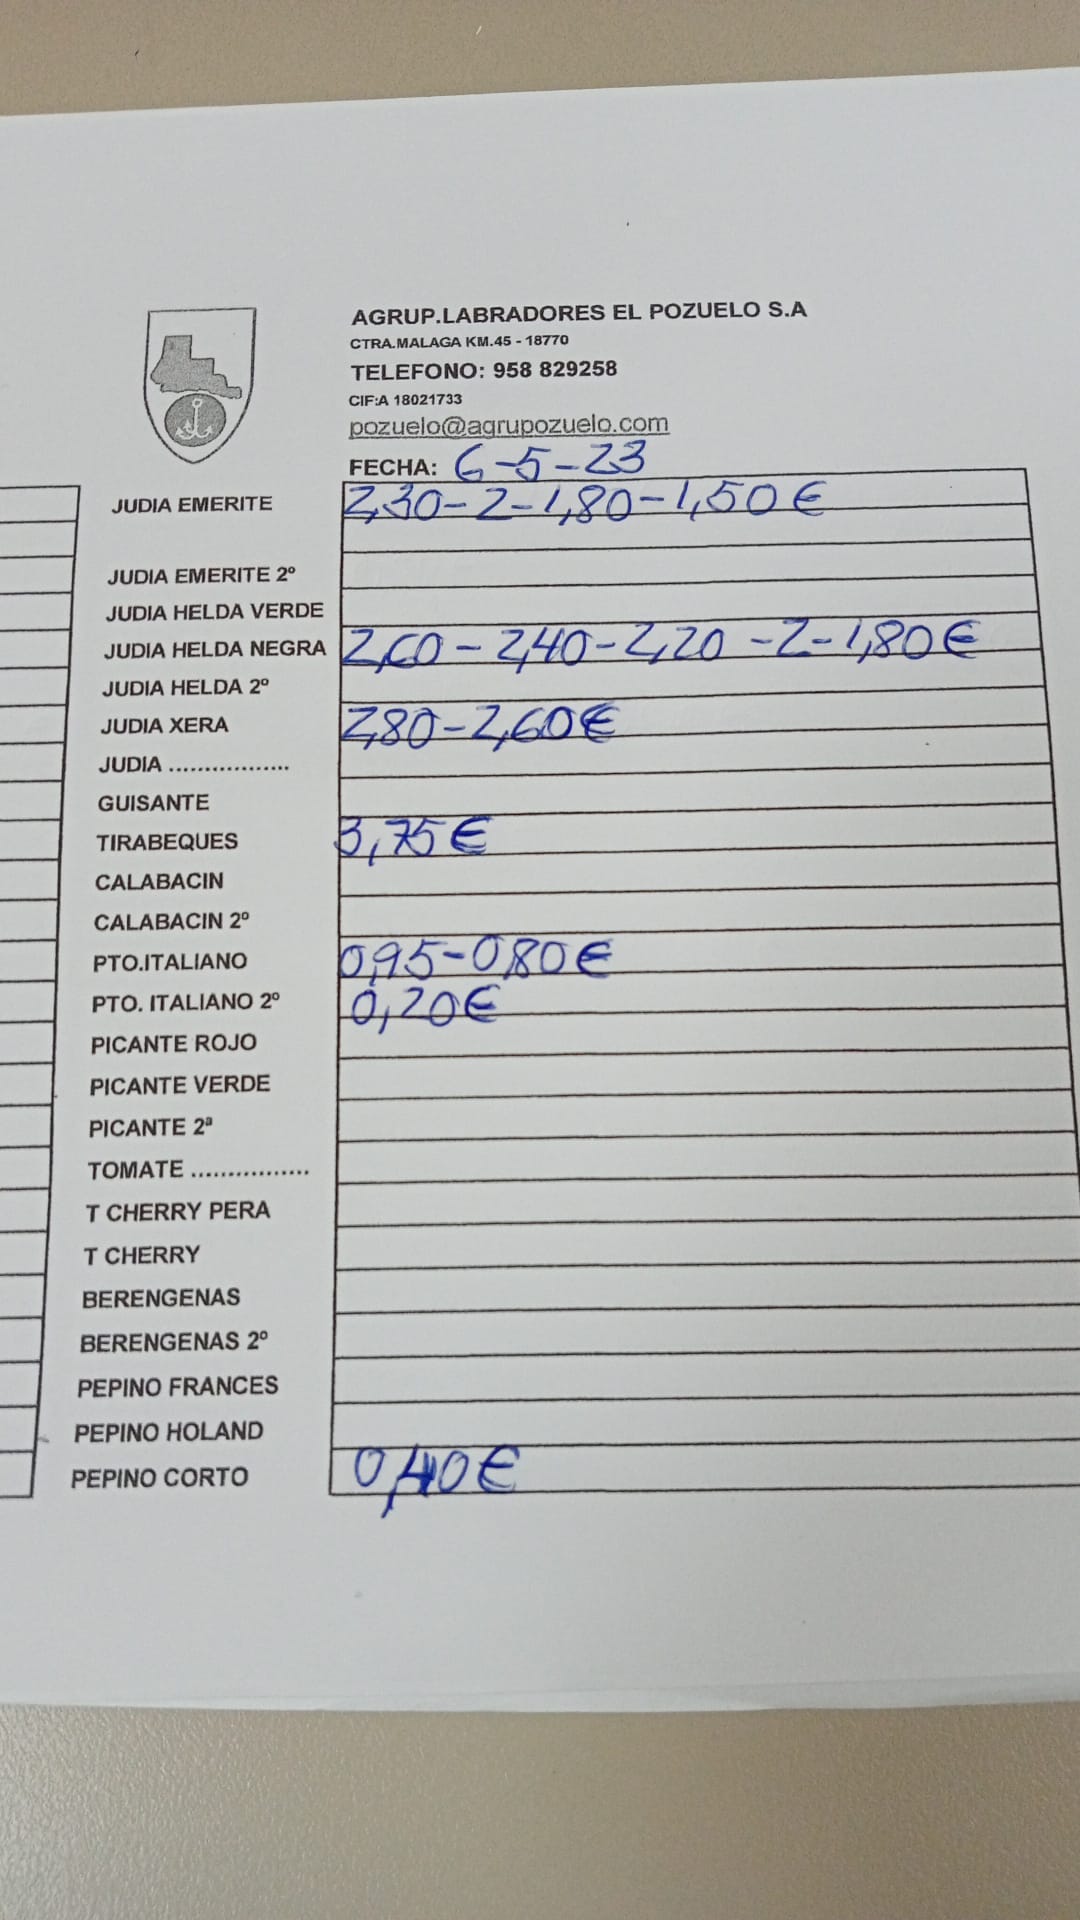 AGRUP.LABRADORES EL POZUELO S.A
CTRA.MALAGA KM.45 - 18770
TELEFONO: 958 829258
CIF:A 18021733
pozuelo@agrupozuelo.com
FECHA: 6-5-23
JUDIA EMERITE 2,30-2-1,80-1,50€
JUDIA EMERITE 2º
JUDIA HELDA VERDE
JUDIA HELDA NEGRA 2,60-2,40-2,20-2-1,80€
JUDIA HELDA 2º
JUDIA XERA 2,80-2,60€
JUDIA .................
GUISANTE
TIRABEQUES 3,75€
CALABACIN
CALABACIN 2º
PTO.ITALIANO 0,95-0,80€
PTO. ITALIANO 2º 0,20€
PICANTE ROJO
PICANTE VERDE
PICANTE 2ª
TOMATE ................
T CHERRY PERA
T CHERRY
BERENGENAS
BERENGENAS 2º
PEPINO FRANCES
PEPINO HOLAND
PEPINO CORTO 0,40€